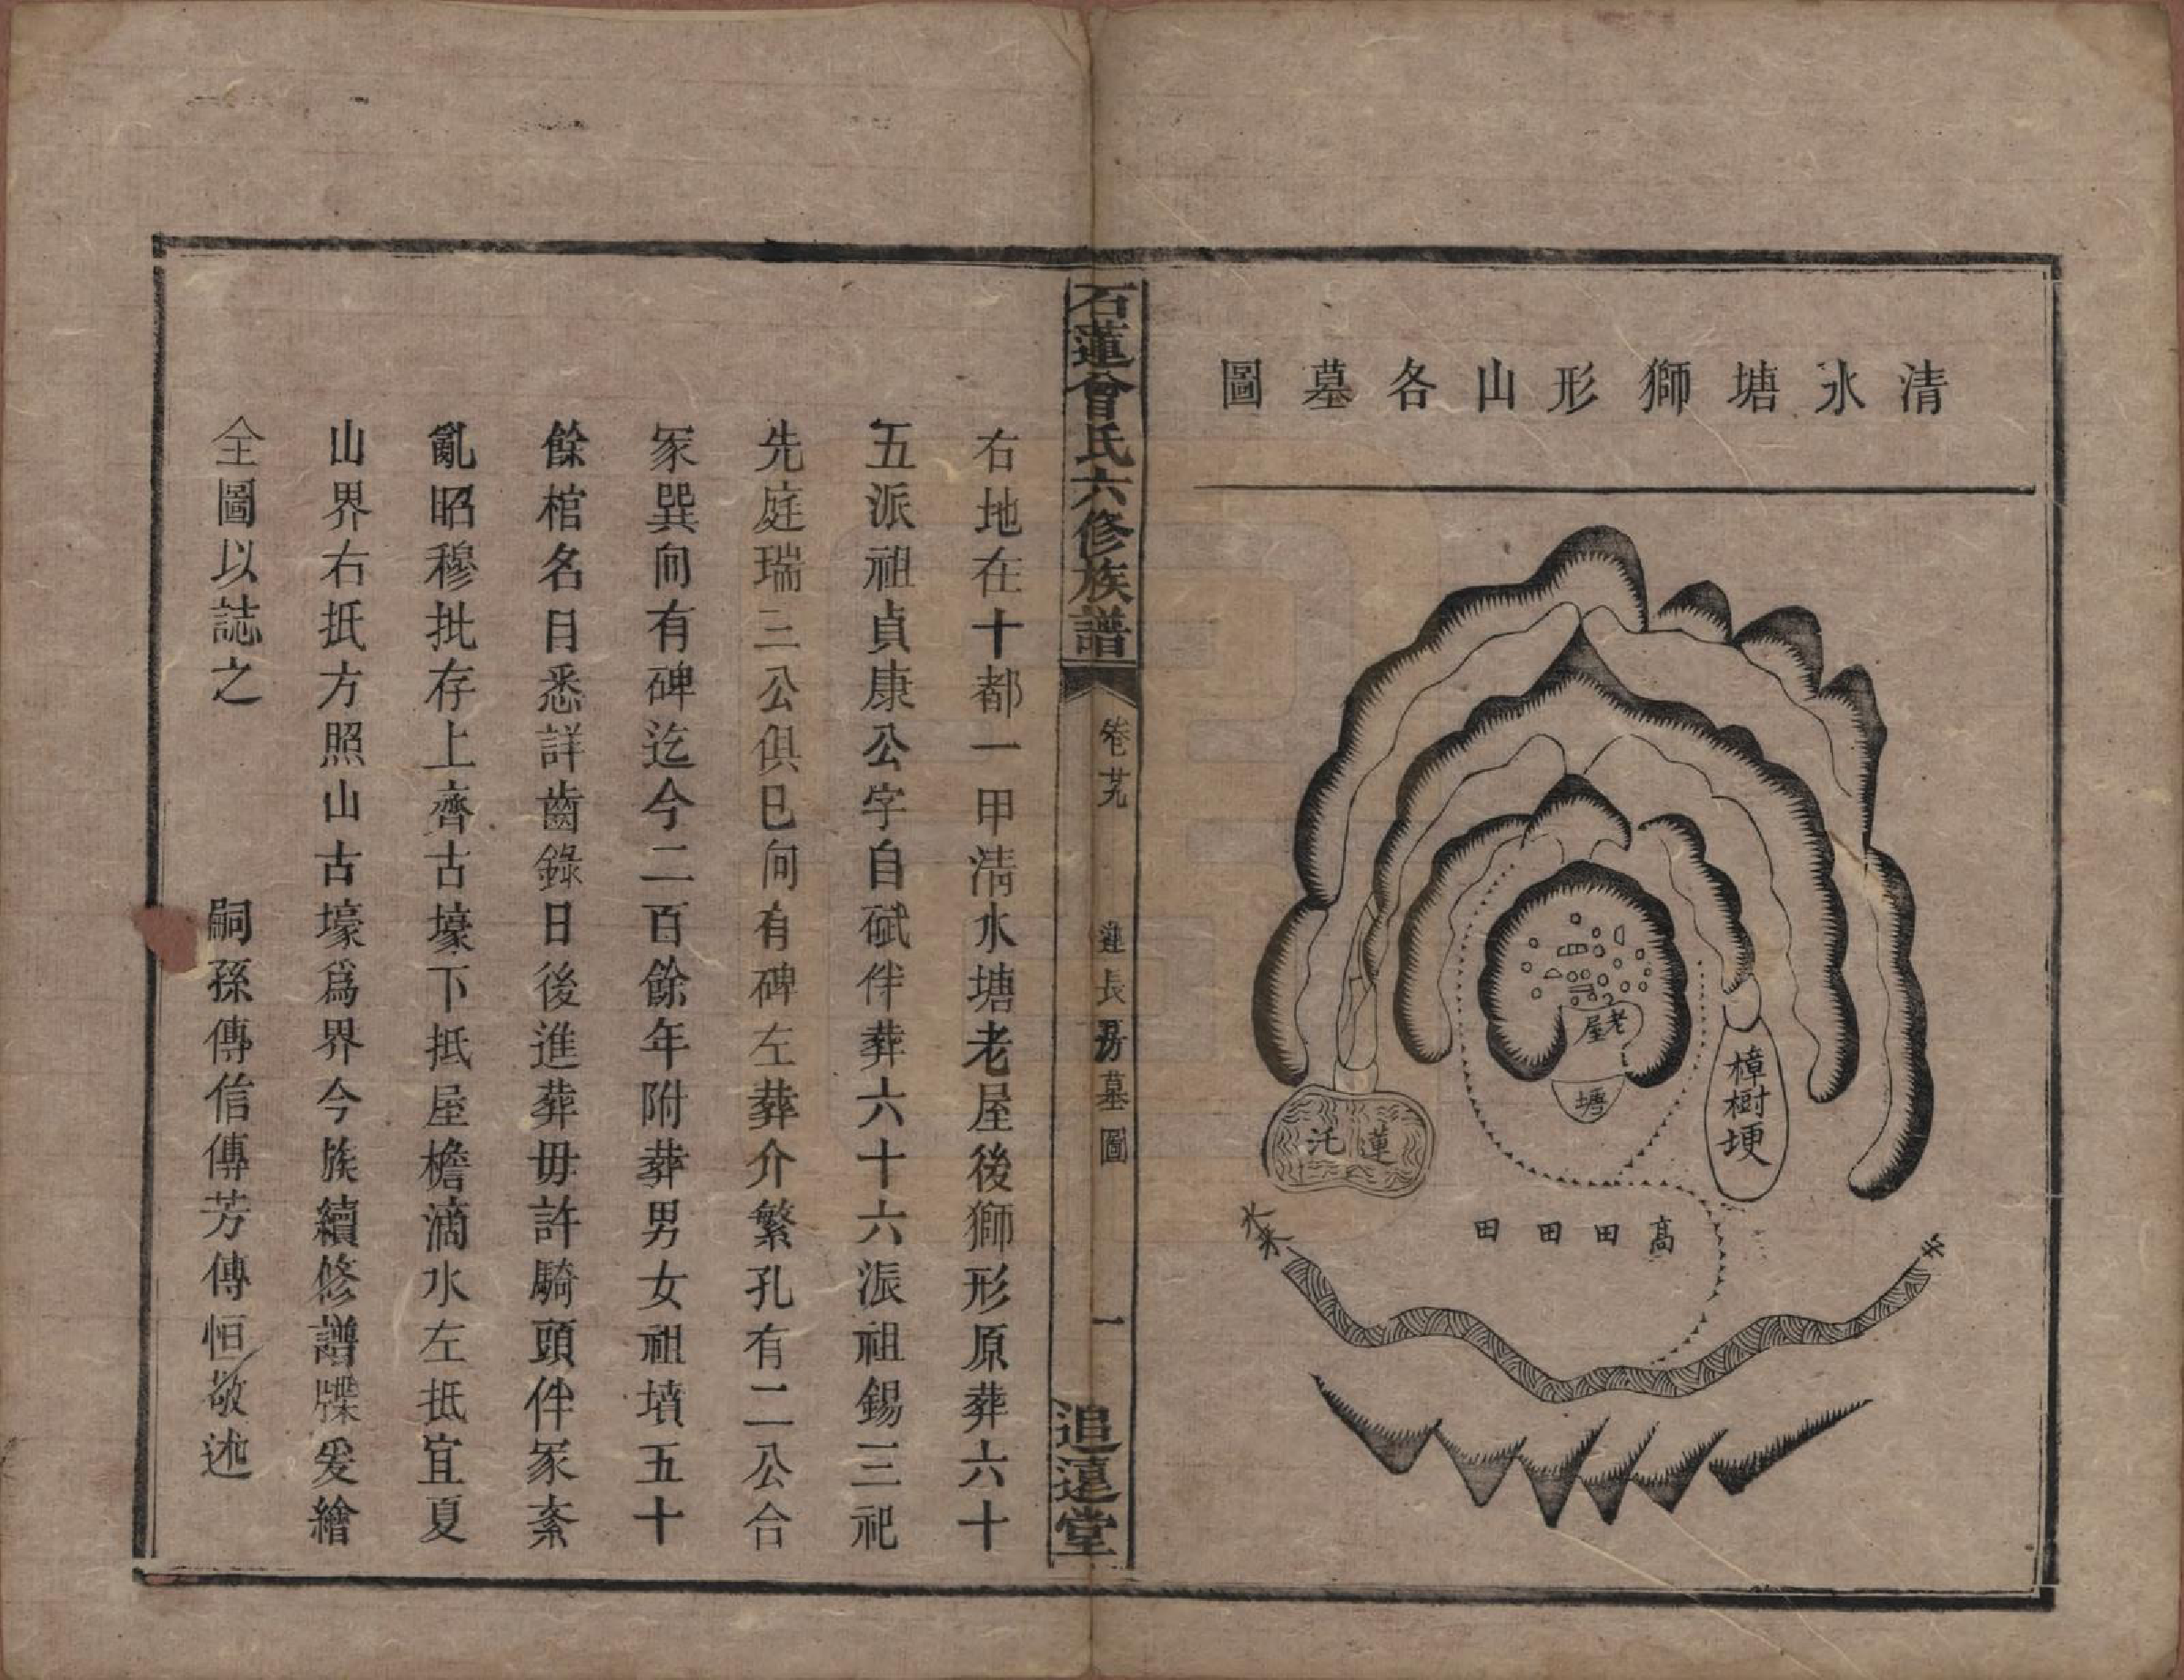 清水塘獅形山各墓圖
老屋
塘
樟樹埂
蓮
高田田田
水來
石蓮曾氏六修族譜
卷廿九
蓮長房墓圖
一
追遠堂
右地在十都一甲清水塘老屋後獅形原葬六十
五派祖貞康公字自碱伴葬六十六派祖錫三祀
先庭瑞三公俱巳向有碑左葬介繁孔有二公合
冢巽向有碑迄今二百餘年附葬男女祖墳五十
餘棺名目悉詳齒錄日後進葬毋許騎頭伴冢紊
亂昭穆批存上齊古壕下抵屋檐滴水左抵宜夏
山界右抵方照山古壕爲界今族續修譜牒爰繪
全圖以誌之 嗣孫傳信傳芳傳恒敬述